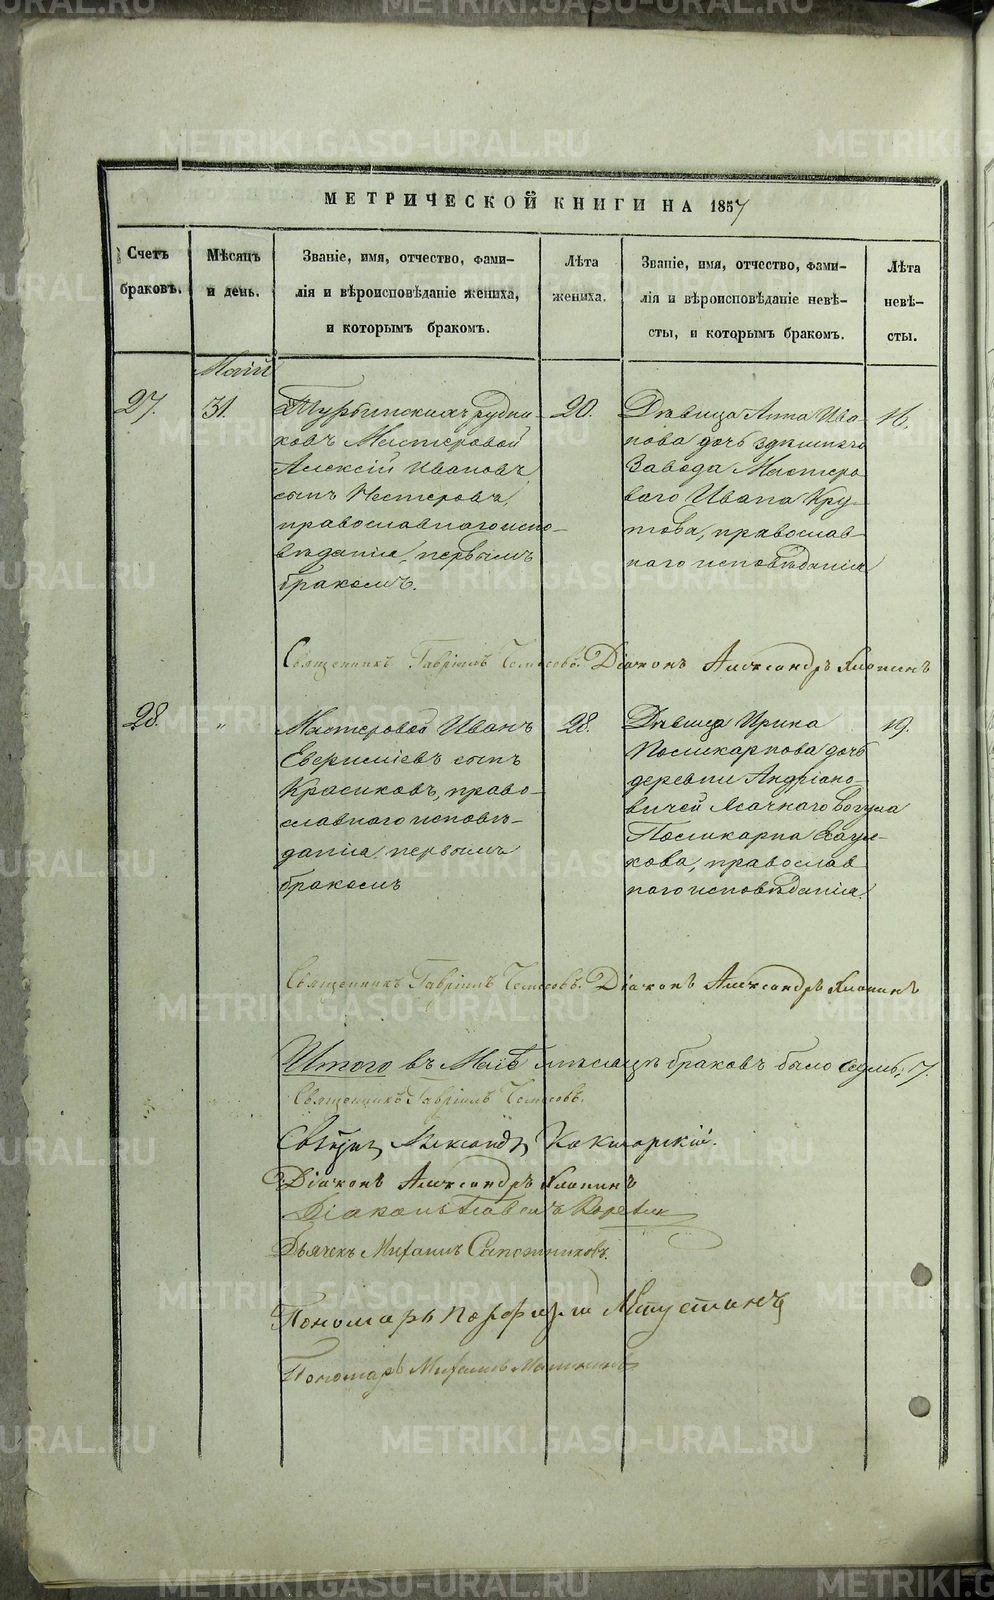 МЕТРИЧЕСКОЙ КНИГИ НА 1857
Счетъ браковъ.
Мѣсяцъ и день.
Званіе, имя, отчество, фами-
лія и вѣроисповѣданіе жениха,
и которымъ бракомъ.
Лѣта жениха.
Званіе, имя, отчество, фами-
лія и вѣроисповѣданіе невѣ-
сты, и которымъ бракомъ.
Лѣта невѣ-
сты.
Маій
27.
31.
Турьинскихъ рудни-
ковъ Мастеровой
Алексій Ивановъ
сынъ Нестеровъ,
православнаго испо-
вѣданія, первымъ
бракомъ.
20.
Дѣвица Анна Ива-
нова дочь здѣшняго
Завода Мастеро
ваго Ивана Кру-
това, православ
наго исповѣданія
16.
Священникъ Гавріилъ Діаконъ Александръ Хлопинъ
28.
"
Мастеровой Иванъ
сынъ
Красиковъ, право-
славнаго исповѣ-
данія, первымъ
бракомъ
28.
Дѣвица Ирина
Поликарпова дочь
деревни Андріано-
вичей Ясачнаго Вогула
Поликарпа
православ
наго исповѣданія.
19.
Священникъ Гавріилъ Діаконъ Александръ Хлопинъ
Итого въ Маіѣ мѣсяцѣ браковъ было семь, 7.
Священникъ Гавріилъ
Александръ
Діаконъ Александръ Хлопинъ
Діаконъ Павелъ
Дьячекъ Михаилъ Сапожниковъ.
Пономарь Порфирій
Пономарь Михаилъ
METRIKI.GASO-URAL.RU